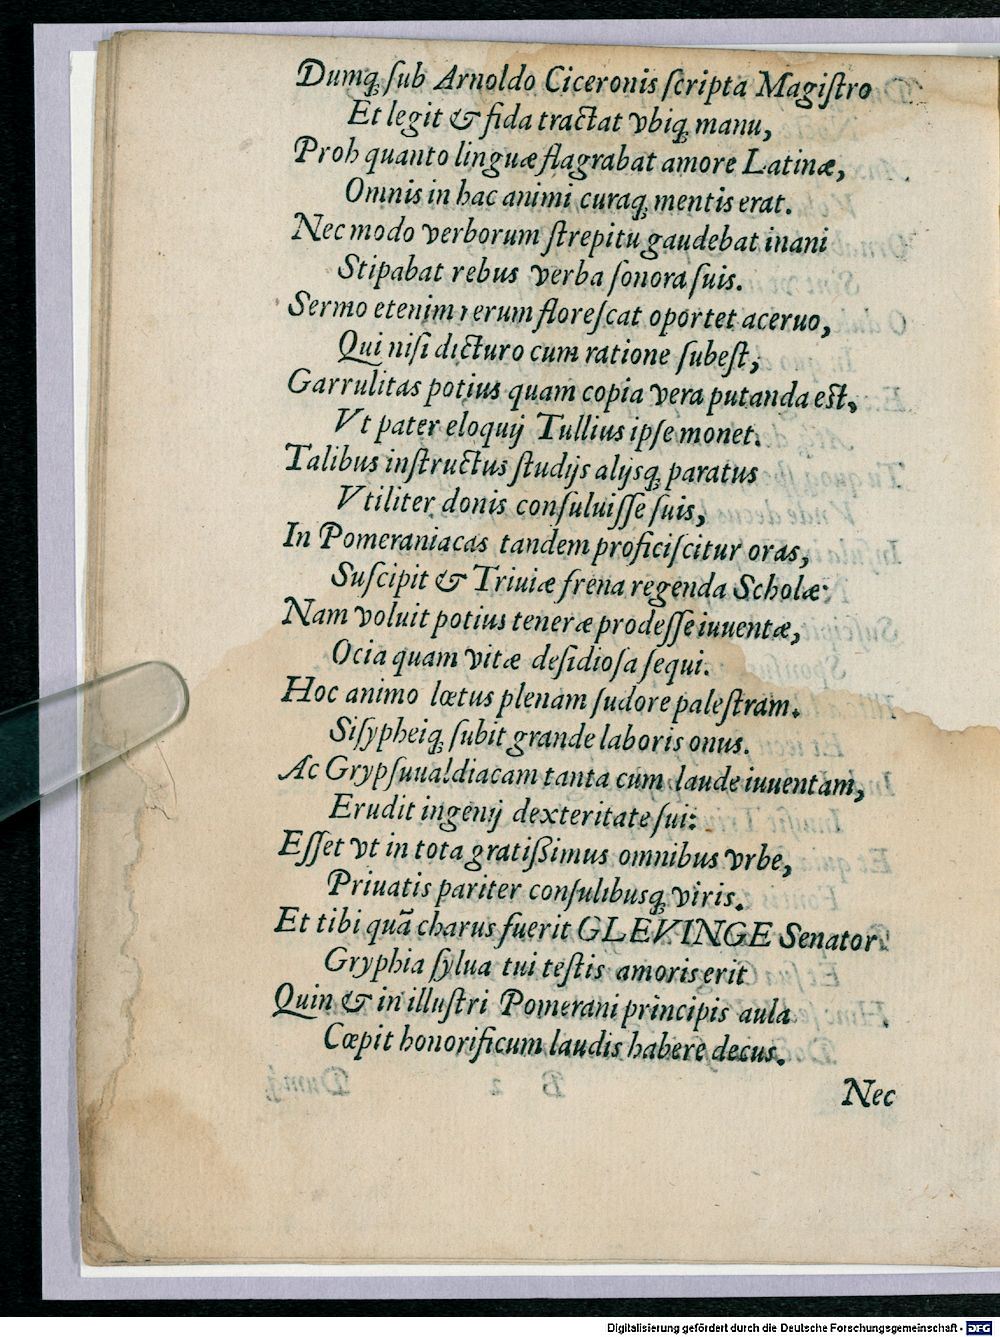 Dumq́; ſub Arnoldo Ciceronis ſcripta Magiſtro
Et legit & fida tractat vbiq́; manu,
Proh quanto linguæ flagrabat amore Latinæ,
Omnis in hac animi curaq́; mentis erat.
Nec modo verborum ſtrepitu gaudebat inani
Stipabat rebus verba ſonora ſuis.
Sermo etenim rerum floreſcat oportet aceruo,
Qui niſi dicturo cum ratione ſubeſt,
Garrulitas potius quam copia vera putanda est,
Vt pater eloquij Tullius ipſe monet.
Talibus inſtructus ſtudijs alijsq́; paratus
Vtiliter donis conſuluiſſe ſuis,
In Pomeraniacas tandem proficiſcitur oras,
Suſcipit & Triuiæ frena regenda Scholæ:
Nam voluit potius teneræ prodeſſe iuuentæ,
Ocia quam vitæ deſidioſa ſequi.
Hoc animo lœtus plenam ſudore paleſtram.
Siſypheiq́; ſubit grande laboris onus.
Ac Grypſuualdiacam tanta cum laude iuuentam,
Erudit ingenij dexteritate ſui:
Eſſet vt in tota gratißimus omnibus vrbe,
Priuatis pariter conſulibusq́; viris.
Et tibi quã charus fuerit GLEVINGE Senator
Gryphia ſylua tui teſtis amoris erit
Quin & in illuſtri Pomerani principis aula
Cœpit honorificum laudis habere decus.
Nec
Digitalisierung gefördert durch die Deutsche Forschungsgemeinschaft - DFG